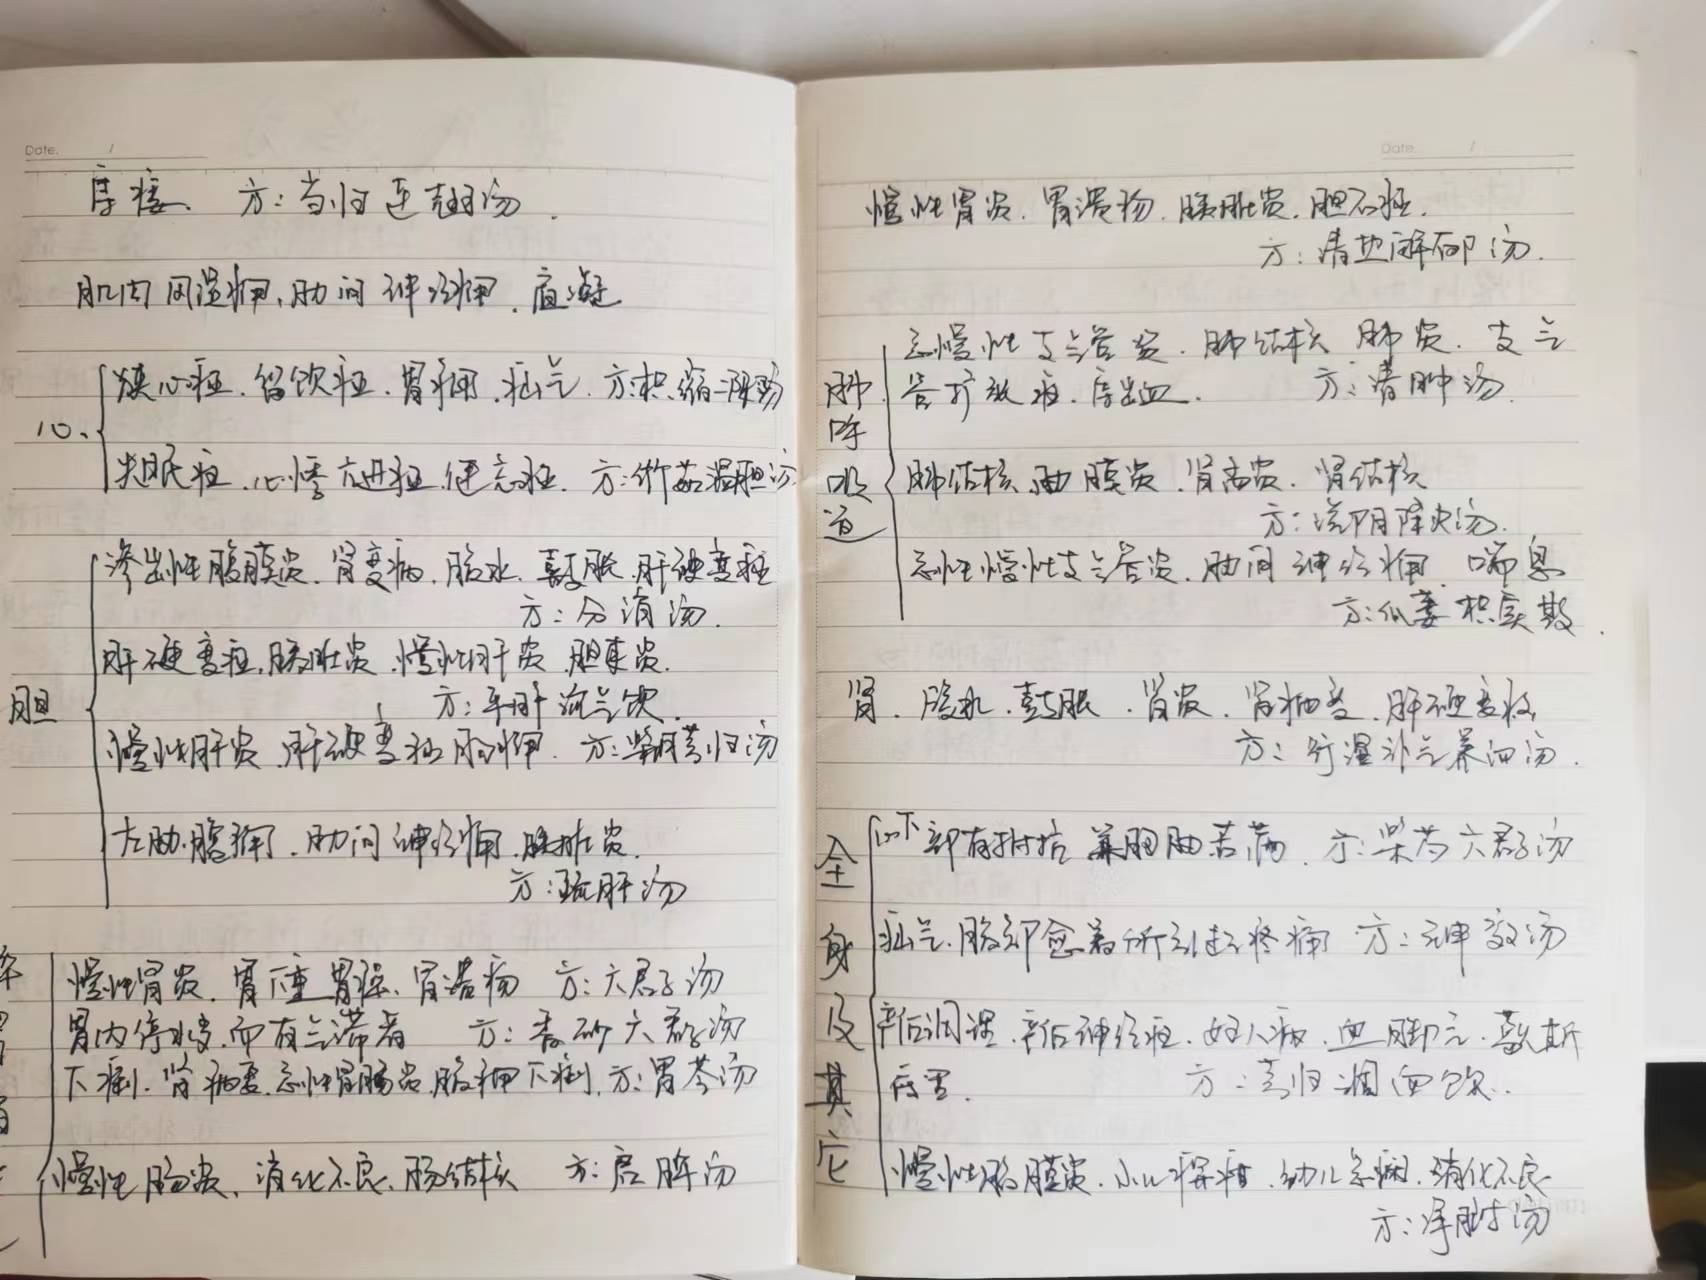 Date. /
方：当归连翘汤.
肌肉风湿痛，肋间神经痛.
心、
狭心症.留饮症.胃痛.疝气. 方:枳缩二陈汤
失眠症.心悸亢进症.健忘症. 方:竹茹温胆汤
胆
渗出性腹膜炎.肾变病.腹水.鼓胀.肝硬变症
方：分消汤.
肝硬变症.胰脏炎.慢性肝炎.胆囊炎.
方：平肝流气饮.
慢性肝炎.肝硬变症 胁痛. 方:柴芎归汤
左肋.腹痛.肋间神经痛.胰脏炎.
方：疏肝汤
慢性胃炎.胃下垂 胃癌.胃溃疡 方：六君子汤
胃内停水,而有气滞者 方：香砂六君子汤
下痢.肾病变.急性胃肠炎.腹痛下痢. 方:胃苓汤
慢性肠炎、消化不良、肠结核 方:启脾汤
Date. /
慢性胃炎.胃溃疡.胰脏炎.胆石症.
方：清热解郁汤.
肺.呼吸道
急慢性支气管炎.肺结核 肺炎.支气
管扩张症. 方：清肺汤.
肺结核.肋膜炎.肾盂炎.肾结核
方：滋阴降火汤.
急性慢性支气管炎.肋间神经痛.喘息
方:瓜蒌枳实散.
肾.腹水.鼓胀.肾炎.肾病变.肝硬变症
方：行湿补气养血汤.
全身及其它
以下部有抵抗 兼胸胁苦满. 方:柴芍六君子汤
疝气.腹部 所引起疼痛 方：神效汤
产后调理.产后神经症.妇人病.血脚气.
方：芎归调血饮.
慢性腹膜炎.小儿 .幼儿急痫.消化不良
方：浄腑汤